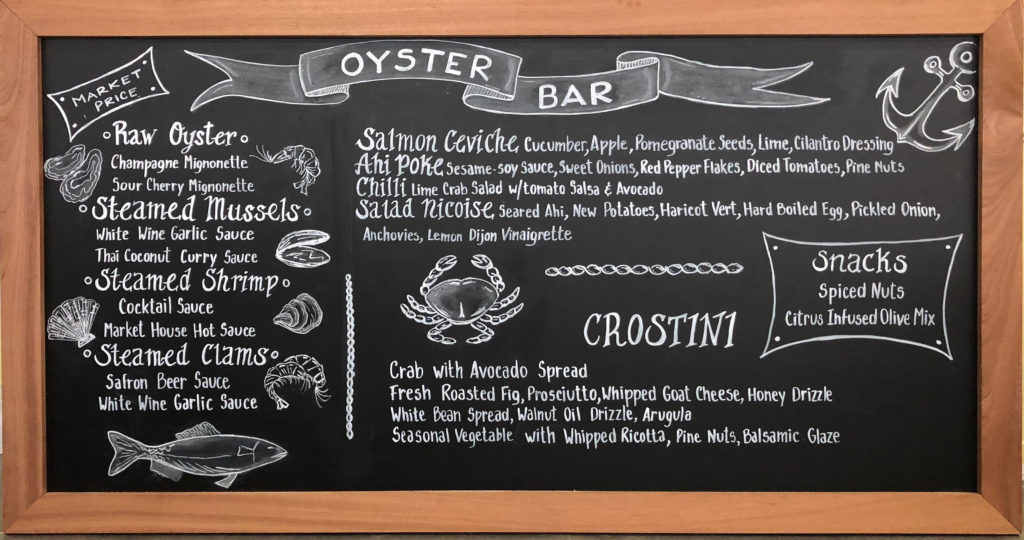 OYSTER
BAR
MARKET
PRICE
Raw Oyster
Champagne Mignonette
Sour Cherry Mignonette
Steamed Mussels
White Wine Garlic Sauce
Thai Coconut Curry Sauce
Steamed Shrimp
Cocktail Sauce
Market House Hot Sauce
Steamed Clams
Safron Beer Sauce
White Wine Garlic Sauce
Salmon Ceviche, Cucumber, Apple, Pomegranate Seeds, Lime, Cilantro Dressing
Ahi Poke, Sesame-soy Sauce, Sweet Onions, Red Pepper Flakes, Diced Tomatoes, Pine Nuts
Chilli Lime Crab Salad w/tomato Salsa & Avocado
Salad Nicoise, Seared Ahi, New Potatoes, Haricot Vert, Hard Boiled Egg, Pickled Onion,
Anchovies, Lemon Dijon Vinaigrette
Snacks
Spiced Nuts
Citrus Infused Olive Mix
CROSTINI
Crab with Avocado Spread
Fresh Roasted Fig, Prosciutto, Whipped Goat Cheese, Honey Drizzle
White Bean Spread, Walnut Oil Drizzle, Arugula
Seasonal Vegetable with Whipped Ricotta, Pine Nuts, Balsamic Glaze